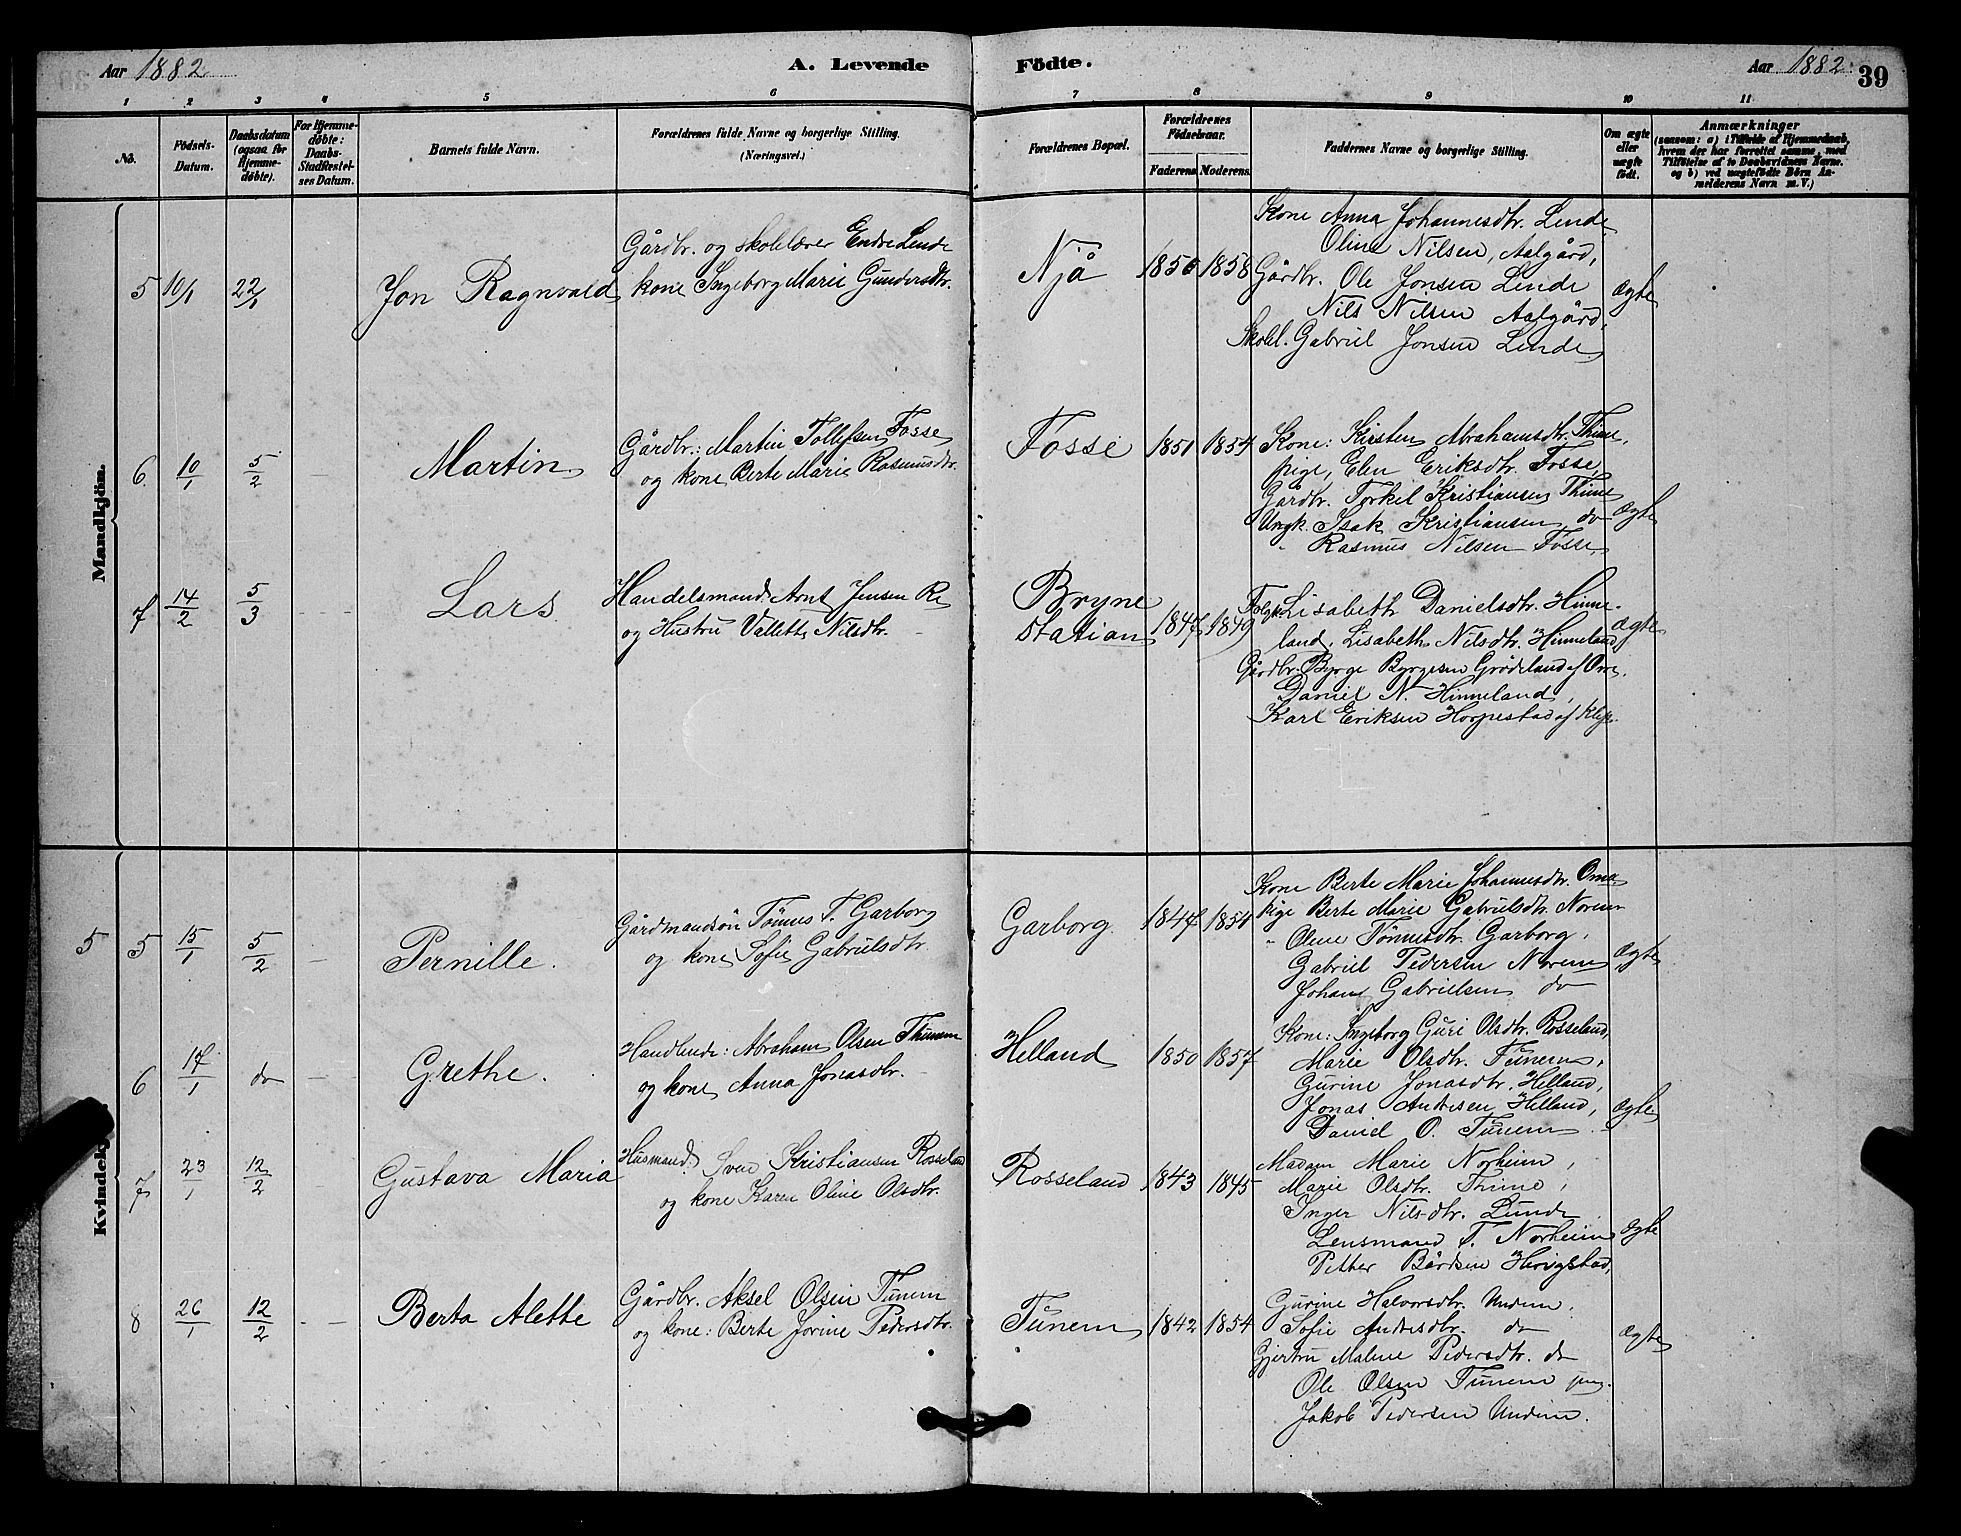 Aar 1882
A. Levende
Födte.
Aar 1882.
39
1 2 3 4 5 6 7 8 9 10 11
No.
Födsels-
Datum.
Daabsdatum
(ogsaa for
Hjemme-
döbte).
For Hjemme-
döbte:
Daabs-
Stadfæstel-
ses Datum.
Barnets fulde Navn.
Forældrenes fulde Navne og borgerlige Stilling.
(Næringsvei.)
Forældrenes Bopæl.
Forældrenes
Födselsaar.
Faderens Moderens
Faddernes Navne og borgerlige Stilling.
Om ægte
eller
uægte
födt.
Anmærkninger
(saasom: a) i Tilfælde af Hjemmedaab,
hvem der har forrettet samme, med
Tilföielse af to Daabsvidners Navne.
og b) ved uægtefödte Börn An-
melderens Navn m.V.)
Mandkjön.
5 10/1 22/1
Jon Ragnvald
Gårdbr. og skolelærer Endre Lende
kone Ingeborg Marie Gundersdtr.
Njå
1856 1858
Kone Anna Johannesdtr. Lende
Oline Nilsen, Aalgård,
Gårdbr. Ole Jonsen Lende
Nils Nilsen Aalgård,
Skolel. Gabriel Jonsen Lende
Ægte
6 10/1 5/2 —
Martin
Gårdbr.: Martin Tollefsen Fosse
og kone Berte Marie Rasmusdtr.
Fosse
1851 1854
Kone: Kirsten Abrahamsdtr. Thime,
pige, Elen Eriksdtr. Fosse,
Gårdbr. Torkel Kristiansen Thime
Ungk. Isak Kristiansen do
" Rasmus Nilsen Fosse
Ægte
7 14/2 5/3 — —
Lars
Handelsmand Arnt Jensen Re
og Hustru Vallette Nilsdtr.
Bryne
Station
1847 1849
Lisabeth Danielsdtr. Hinne-
land, Lisabeth Nilsdtr. Hinneland
Gårdbr. Byrge Byrgesen Grödeland af Orre.
Daniel N. Hinneland,
Karl Eriksen Horpestad af Klep.
Ægte
Kvindekj
5 5 15/1 5/2 —
Pernille.
Gårdmandsön Tönnes T. Garborg
og kone Sofie Gabrielsdtr.
Garborg.
1847 1854
Kone Berte Marie Johannesdtr. Oma
Pige Berte Marie Gabrielsdtr. Norem
" Olene Tönnesdtr. Garborg,
Gabriel Pedersen Norem
Johan Gabrielsen do
Ægte
6 17/1 do —
Grethe.
Handlende: Abraham Olsen Thunem
og kone Anna Jonasdtr.
Helland
1850 1857
Kone: Ingeborg Guri Olsdtr. Rosseland,
Marie Olsdtr. Tunem,
Gurine Jonasdtr. Helland,
Jonas Andersen Helland,
Daniel O. Tunem
Ægte
7 23/1 12/2 —
Gustava Maria
Husmand Sven Kristiansen Rosseland
og kone Karen Oline Olsdtr.
Rosseland
1843 1845
Madam Marie Norheim,
Marie Olsdtr. Thime,
Inger Nilsdtr. Lunde
Lensmand T. Norheim
Petter Bårdsen Herigstad,
Ægte
8 26/1 12/2 — —
Berta Alette
Gårdbr. Aksel Olsen Tunem
og kone: Berte Jorine Pedersdtr.
Tunem
1842 1854
Gurine Halvorsdtr. Undem,
Sofie Andersdtr. do
Gjertru Malene Pedersdtr. do
Ole Olsen Tunem jun.
Jakob Pedersen Undem.
Ægte